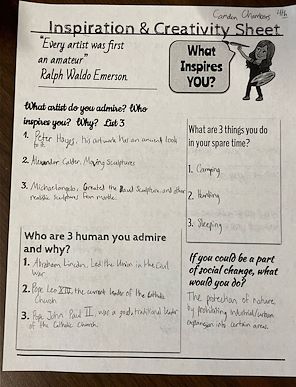 Camden Chambers 4th
Inspiration & Creativity Sheet
"Every artist was first
an amateur"
Ralph Waldo Emerson.
What
Inspires
YOU?
What artist do you admire? Who
inspires you? Why? List 3
1. Peter Hayes, his artwork has an ancient look
to it.
2. Alexander Calder, Moving Sculptures
3. Michaelangelo, Created the David Sculpture, and other
realistic sculptures from marble.
What are 3 things you do
in your spare time?
1. Camping
2. Hunting
3. Sleeping
Who are 3 human you admire
and why?
1. Abraham Lincoln, Led the Union in the Civil
War
2. Pope Leo XIV, the current leader of the Catholic
Church
3. Pope John Paul II, was a good, traditional leader
of the Catholic Church.
If you could be a part
of social change, what
would you do?
The protection of nature
by prohibiting industrial/urban
expansion into certain areas.